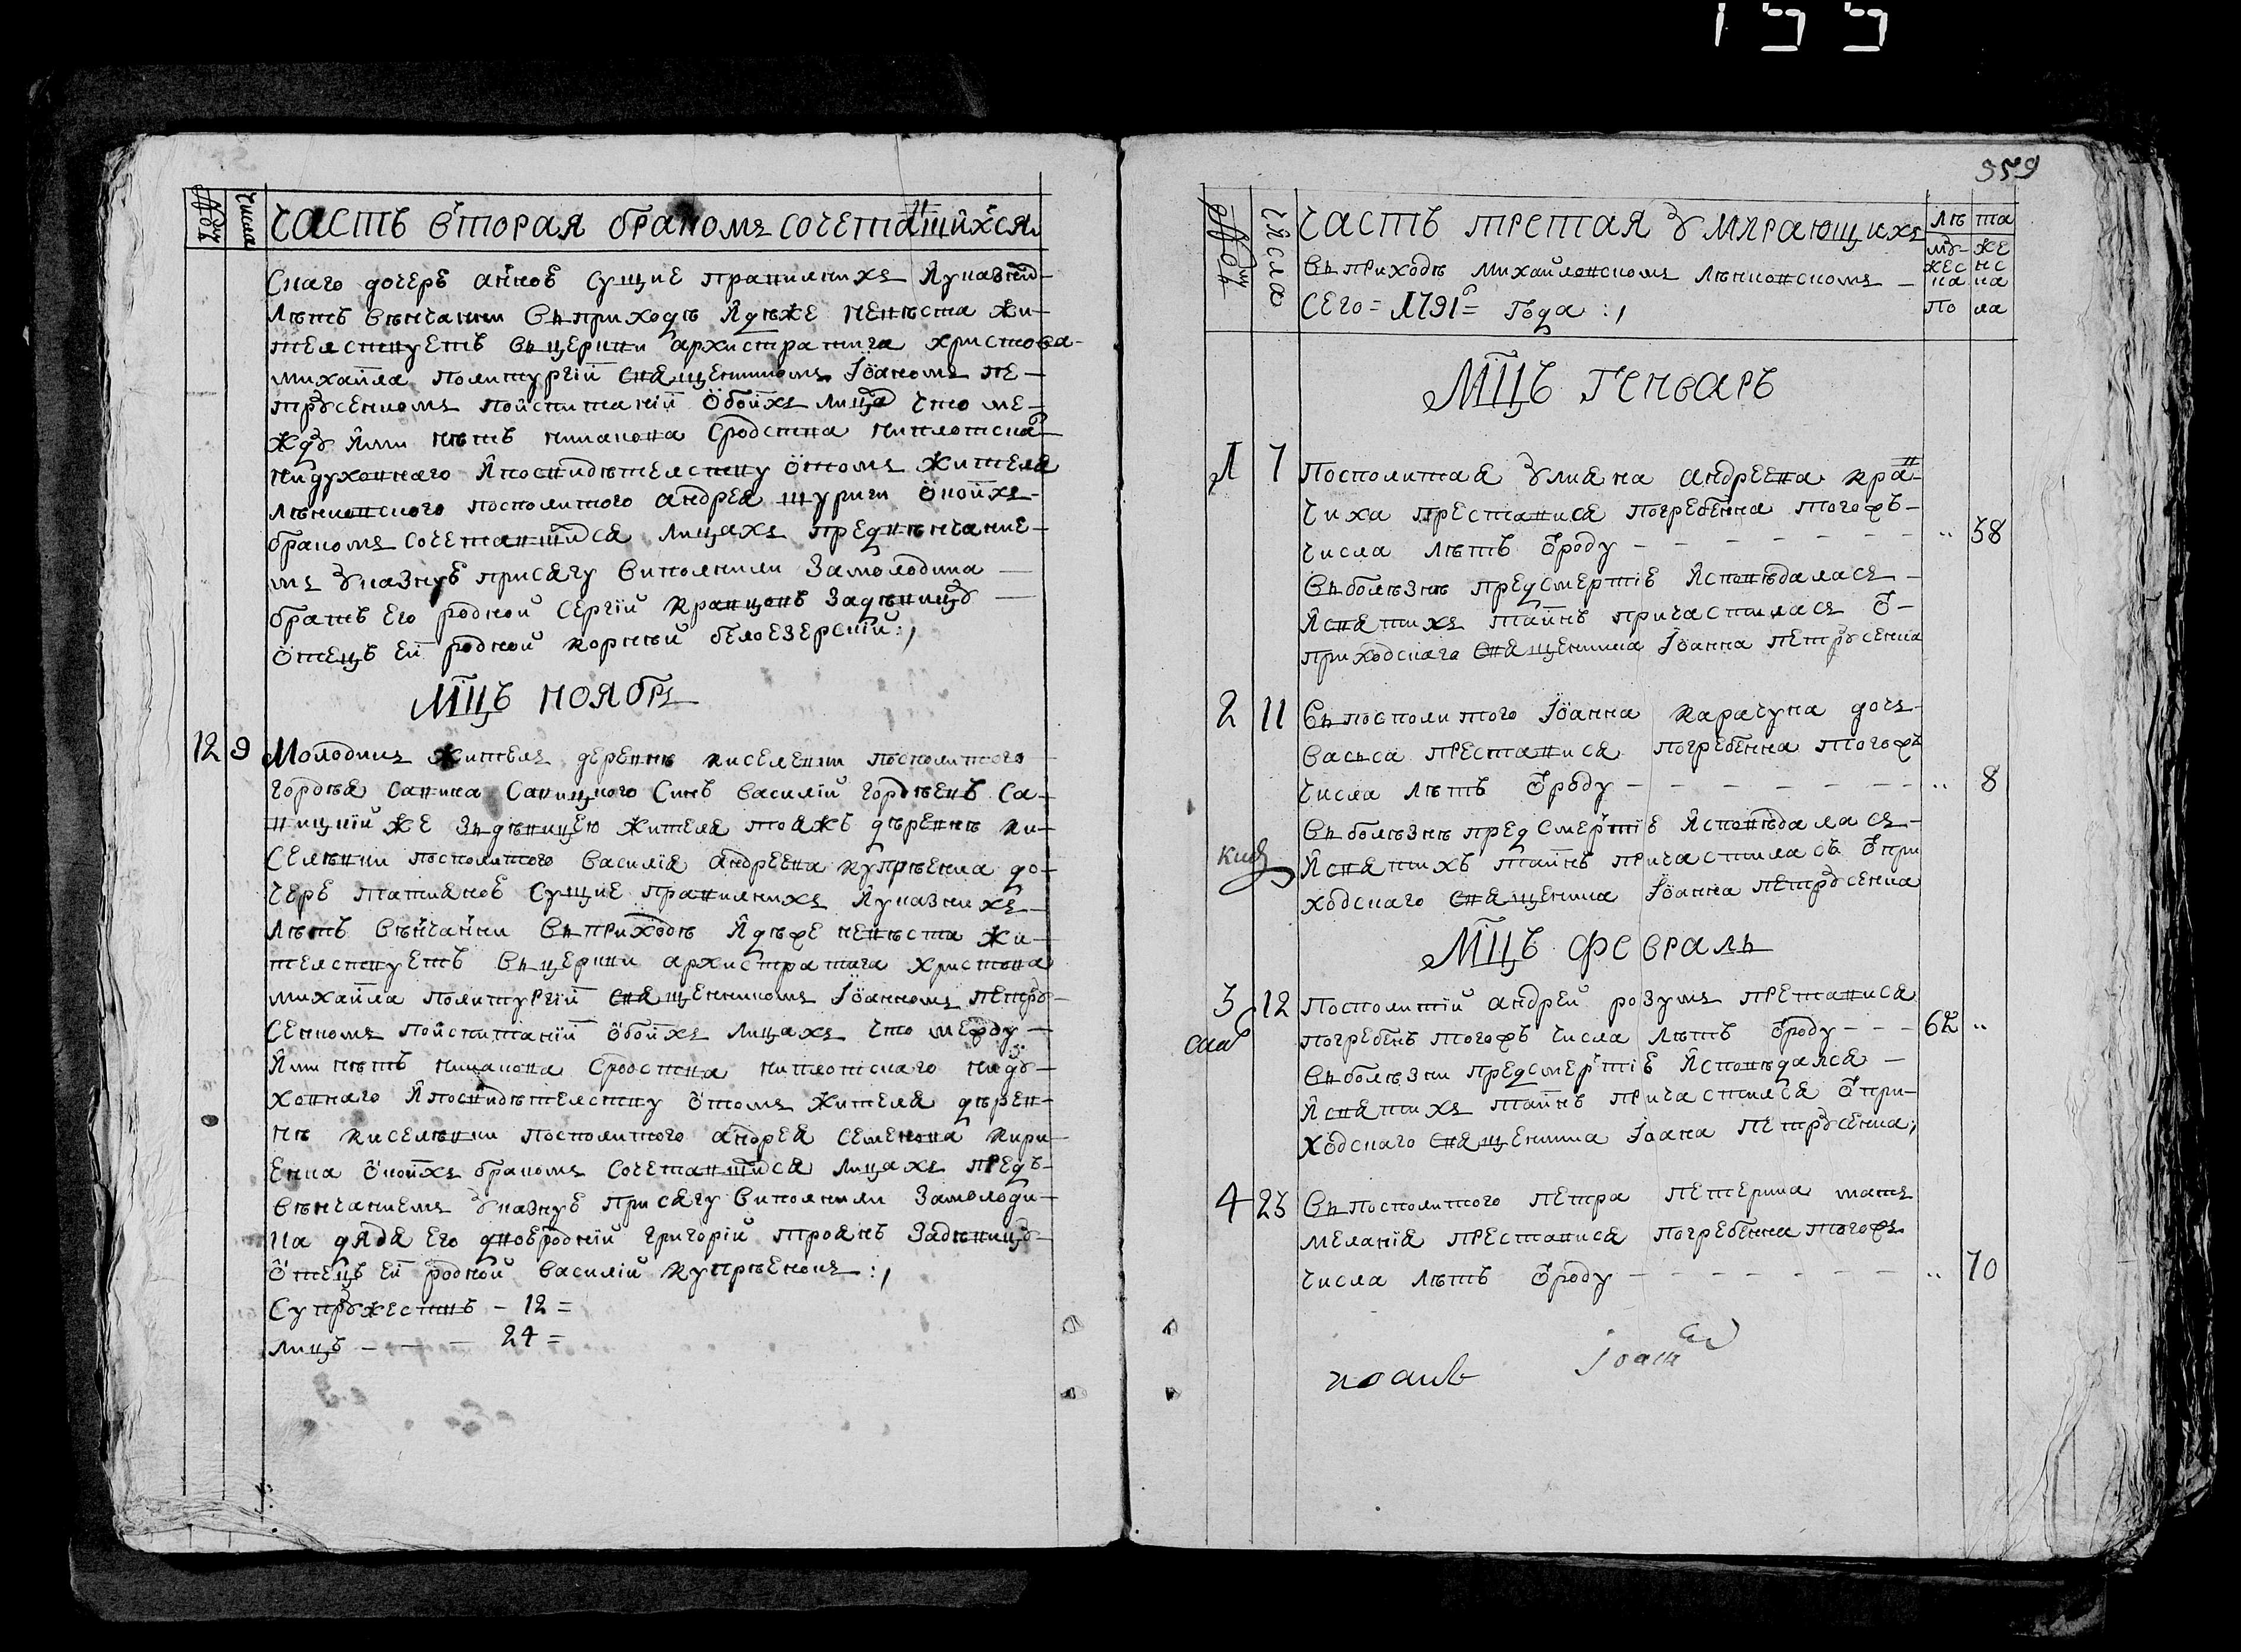 359
Числа
ЧАСТЬ ВТОРАЯ бракомъ сочетавшихся
скаго дочерѣ аннѣ сущие правилнихъ и указний
лѣтъ вѣнчанни въ приходѣ идѣже невѣста жи-
телствуетъ въ церкви архистратига христова-
михаила политургии священникомъ Іоанномъ пе-
трусенкомъ поиспитании обоихъ лицъ что ме-
жду ими нѣтъ никакова сродства ниплотска
нидуховнаго и посвидѣтелству отомъ жителя
лѣнковского посполитого андрея шуриги окоихъ-
бракомъ сочетавшийся лицахъ предвѣнчание-
мъ указную присягу виполнили Замолодика
братъ его родной Сергій кравцовъ Задѣвицу
отецъ ей родной корній белоезерскій:,
МЦЪ НОЯбРЬ
12 9 Молодикъ жителъ деревнѣ киселевки посполитого
гордѣя савича савицкого синъ василій гордѣевъ са-
вицкій же зъ дѣвицею жителя тояжъ дѣревнѣ ки-
селѣвки посполитого василія андреева купрѣенка до-
чере татиянѳ сущие правилнихъ и указнихъ
лѣтъ вѣнчанни въ приходѣ идѣже невѣста жи-
телствуетъ въ церкви архистратига христова
михаила политургии священникомъ Іоанномъ петру-
сенкомъ поиспитании обоихъ лицахъ что между
ими нѣтъ никакова сродства ниплотскаго ниду-
ховнаго и посвидѣтелству отомъ жителя дѣрев-
нѣ киселѣвки посполитого андрея семенова кири-
енка окоихъ бракомъ сочетавшийся лицахъ предъ-
вѣнчаниемъ указную присягу виполнили Замолоди-
ка дядя его двоеродній григорій троянъ Задѣвицу
отецъ ей родной василій купрѣенокъ:,
Супружествъ - 12 =
лицъ - - - 24 =
Числа
ЧАСТЬ ТРЕТАЯ УМИРАЮЩИХЪ
лѣ та
му- же
жес нс
ка ка
по ла
въ приходѣ михайловскомъ лѣнковскомъ -
СЕГО = 1791 = года:,
МЦЪ ГЕНВАРЬ
1 7 Посполитая улияна андреева крав-
чиха преставися погребенна тогожъ-
числа лѣтъ ѿроду - - - - - - - „ 58
въ болѣзнѣ предсмертіе исповѣдалась-
и святихъ таинъ причастилась ѿ-
приходскаго священника Іоанна петрусенка
2 11 въ посполитого Іоанна карачуна дочъ-
васьса преставися погребенна тогожъ
числа лѣтъ ѿроду - - - - - - - „ 8
въ болѣзнѣ пред смертіе исповѣдалась-
и святихъ таинъ причастиласъ ѿпри
ходскаго священника Іоанна петрусенка
МЦЪ ФЕВРАЛЬ
3 12 Посполитій андрей розумъ претавися
погребенъ тогожъ числа лѣтъ ѿроду - - - 62 „
въ болѣзни предсмертіе исповѣдался -
и святихъ таинъ причастился ѿпри-
ходскаго священника Іоана петрусенка,
4 23 въ посполитого петра петерика мать
меланія преставися погребенна тогожъ
числа лѣтъ ѿроду - - - - - - - „ 70